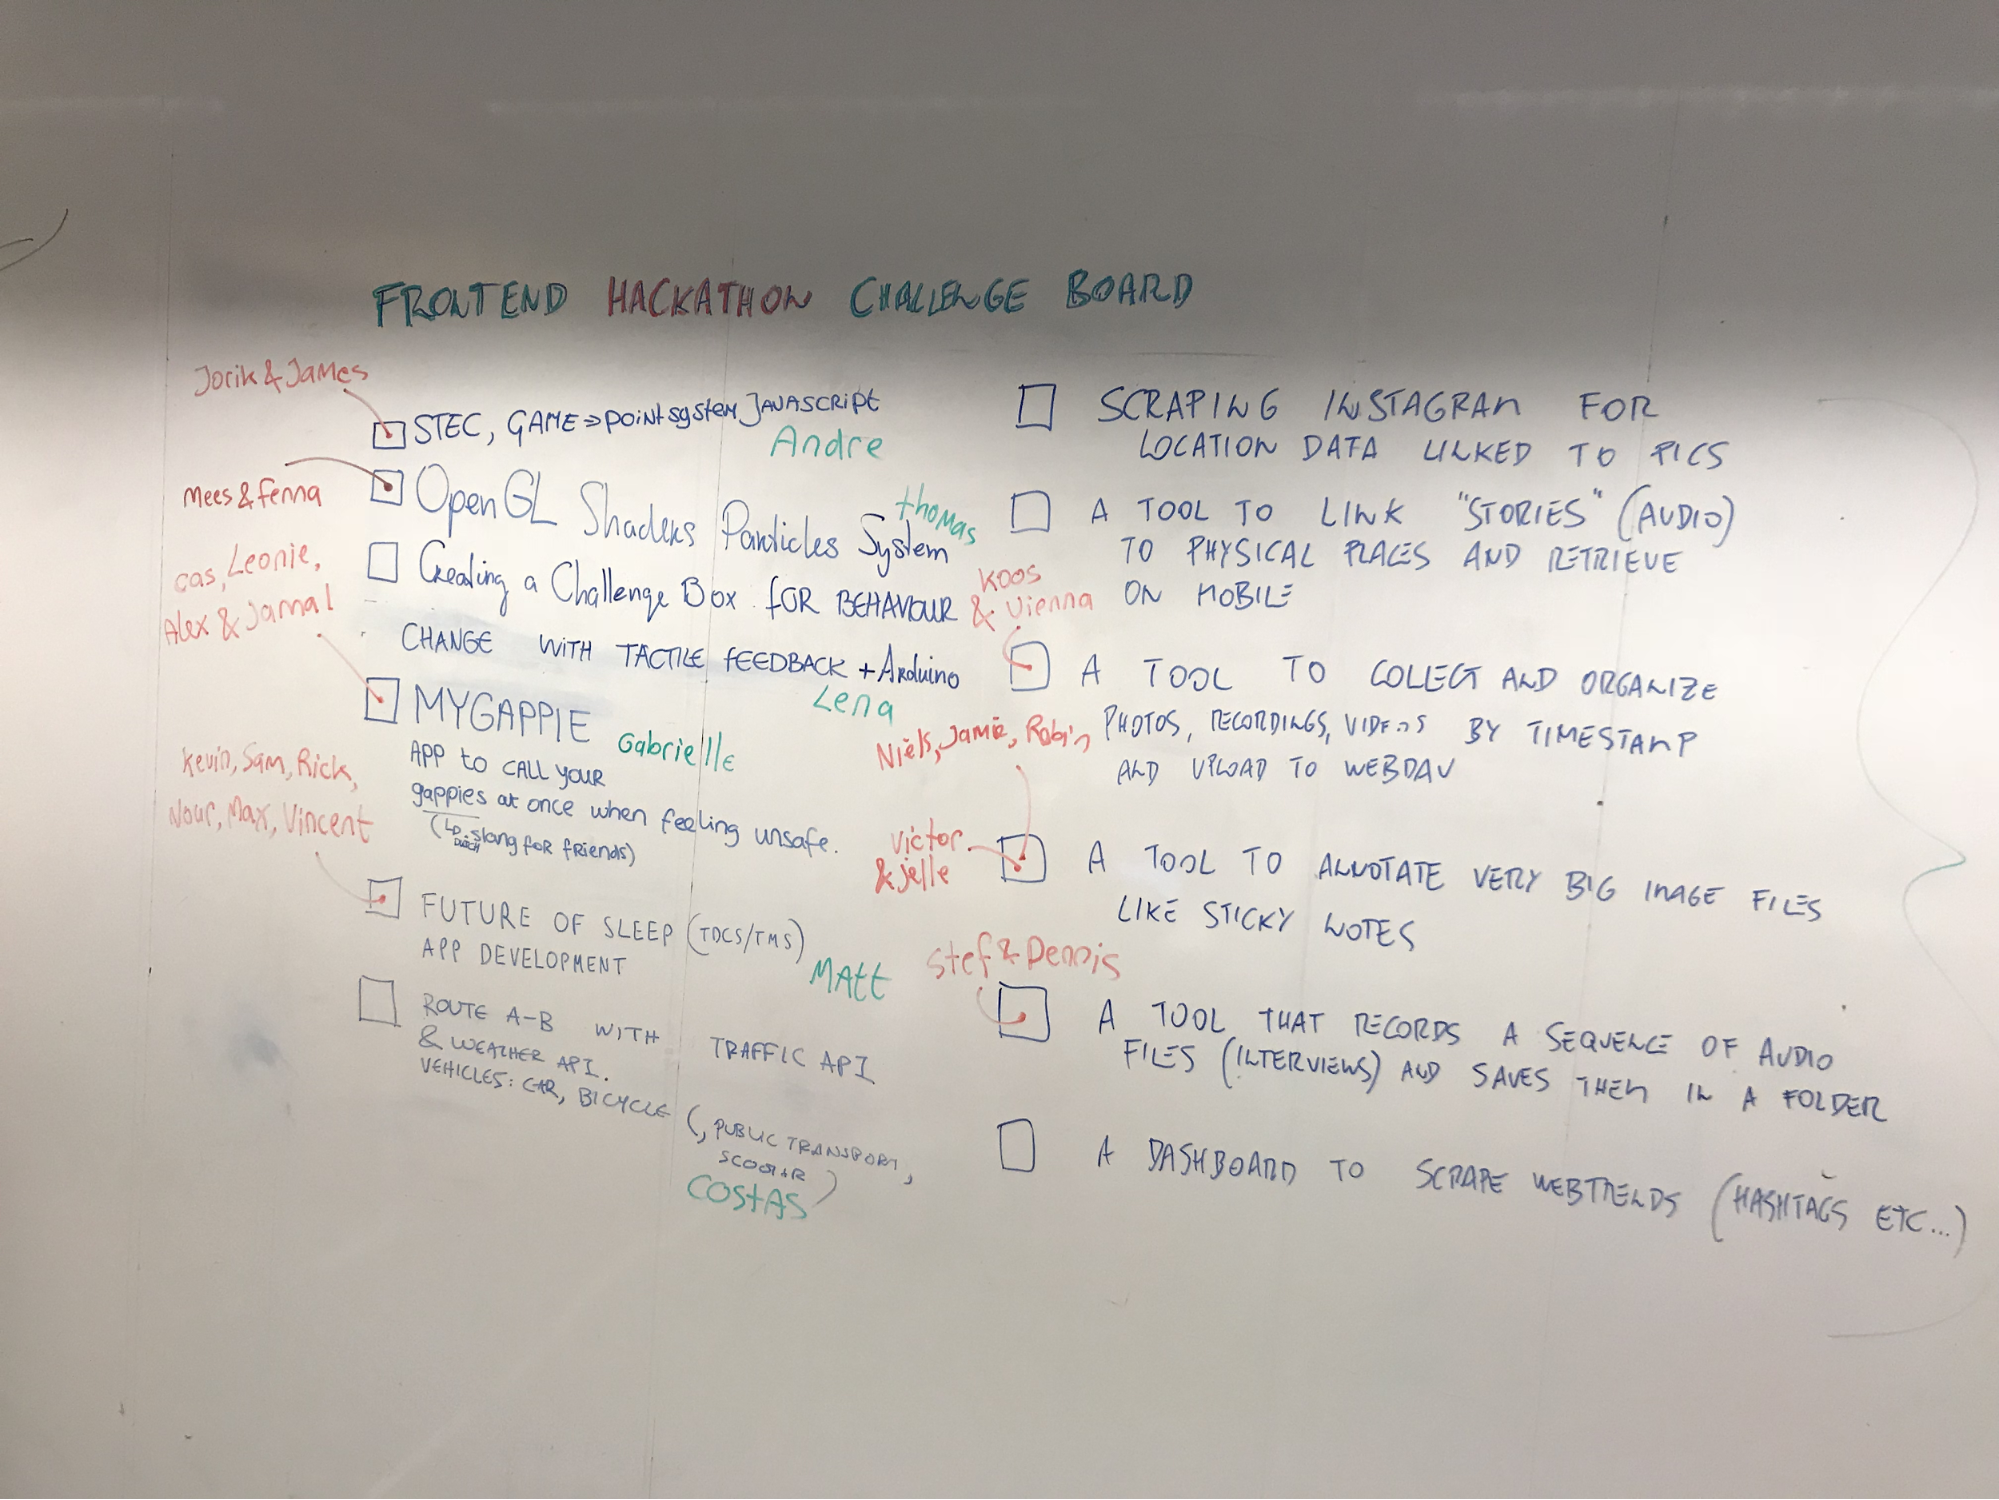 FRONTEND HACKATHON CHALLENGE BOARD
Jorik & James
STEC, GAME => pointsystem JAVASCRIPT
Andre
Mees & Fenna
OpenGL Shaders Particles System
thomas
Creating a Challenge Box FOR BEHAVIOUR
CHANGE WITH TACTILE FEEDBACK + Arduino
Lena
cas, Leonie,
Alex & Jamal
MYGAPPIE
Gabrielle
APP to CALL YOUR
gappies at once when feeling unsafe.
(↳ DUTCH slang FOR FRIENDS)
Kevin, Sam, Rick,
Nour, Max, Vincent
FUTURE OF SLEEP (TDCS/TMS)
APP DEVELOPMENT
MAtt
ROUTE A-B WITH TRAFFIC API
& WEATHER API.
VEHICLES: CAR, BICYCLE (, PUBLIC TRANSPORT,
SCOOTER)
COStAS
SCRAPING INSTAGRAM FOR
LOCATION DATA LINKED TO PICS
A TOOL TO LINK "STORIES" (AUDIO)
TO PHYSICAL PLACES AND RETRIEVE
ON MOBILE
KOOS
& Vienna
A TOOL TO COLECT AND ORGANIZE
PHOTOS, RECORDINGS, VIDEOS BY TIMESTAMP
AND UPLOAD TO WEBDAV
Niels, Jamie, Robin
Victor
& jelle
A TOOL TO ANNOTATE VERY BIG IMAGE FILES
LIKE STICKY NOTES
Stef & Dennis
A TOOL THAT RECORDS A SEQUENCE OF AUDIO
FILES (INTERVIEWS) AND SAVES THEM IN A FOLDER
A DASHBOARD TO SCRAPE WEBTRENDS (HASHTAGS ETC...)